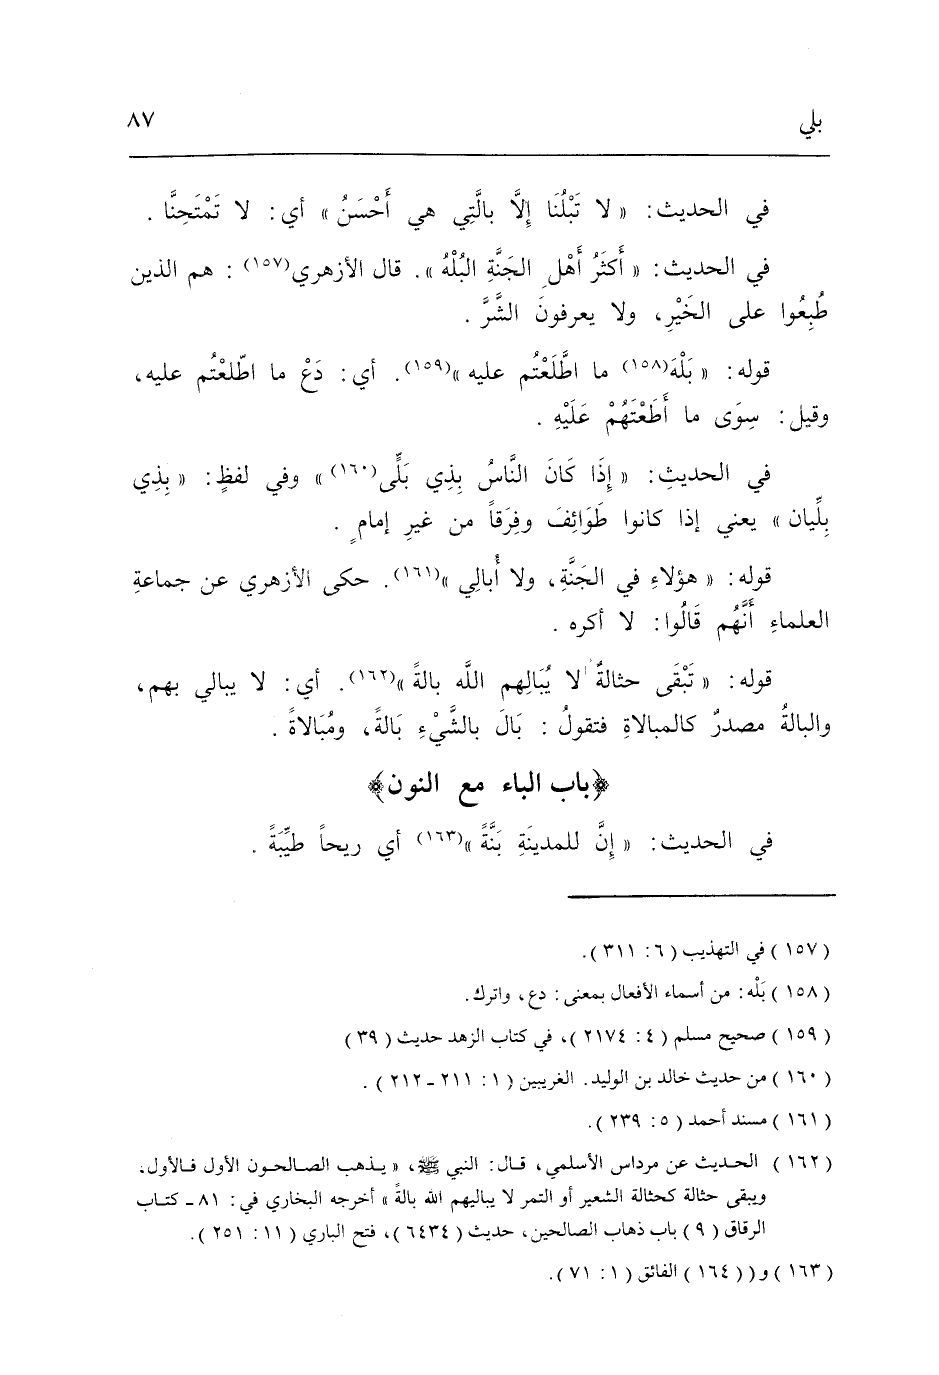 بلي
٨٧
في الحديث: « لا تَبْلُنَا إِلَّا بالَّتِي هي أَحْسَنُ » أي: لا تَمْتَحِنَّا .
في الحديث: « أَكثَرُ أَهْلِ الجَنَّةِ البُلْهُ ». قال الأزهري(١٥٧) : هم الذين
طُبِعُوا على الخَيْرِ، ولا يعرفونَ الشَّرَّ .
قوله: « بَلْهَ(١٥٨) ما اطَّلَعْتُم عليه »(١٥٩). أي: دَعْ ما اطّلعْتُم عليه،
وقيل: سِوَى ما أَطَعْتَهُمْ عَلَيْهِ .
في الحديثِ: « إِذَا كَانَ النَّاسُ بِذِي بَلِّى(١٦٠) » وفي لفظٍ: « بِذِي
بِلِّيان » يعني إذا كانوا طَوَائِفَ وفِرَقاً من غيرِ إمام ٍ .
قوله: « هؤلاءِ في الجَنَّةِ، ولا أُبالِي »(١٦١). حكى الأزهري عن جماعةِ
العلماءِ أَنَّهُم قَالُوا: لا أكره .
قوله: « تَبْقَى حثالةٌ لا يُبَالِهم اللَّه بالةً »(١٦٢). أي: لا يبالي بهم،
والبالةُ مصدرٌ كالمبالاةِ فتقولُ : بَالَ بالشَّيْءِ بَالةً، ومُبَالاةً .
﴿باب الباء مع النون﴾
في الحديث: « إِنَّ للمدينَةِ بَنَّةً »(١٦٣) أي ريحاً طيِّبَةً .
( ١٥٧ ) في التهذيب ( ٦: ٣١١ ).
( ١٥٨ ) بَلْه: من أسماء الأفعال بمعنى: دع، واترك.
( ١٥٩ ) صحيح مسلم ( ٤: ٢١٧٤ )، في كتاب الزهد حديث ( ٣٩ )
( ١٦٠ ) من حديث خالد بن الوليد. الغريبين ( ١: ٢١١ - ٢١٢ ) .
( ١٦١ ) مسند أحمد ( ٥: ٢٣٩ ).
( ١٦٢ ) الحديث عن مرداس الأسلمي، قال: النبي ﷺ، « يذهب الصالحون الأول فالأول،
ويبقى حثالة كحثالة الشعير أو التمر لا يباليهم الله بالةً » أخرجه البخاري في: ٨١ - كتاب
الرقاق ( ٩ ) باب ذهاب الصالحين، حديث ( ٦٤٣٤ )، فتح الباري ( ١١: ٢٥١ ).
( ١٦٣ ) و( ( ١٦٤ ) الفائق ( ١: ٧١ ).